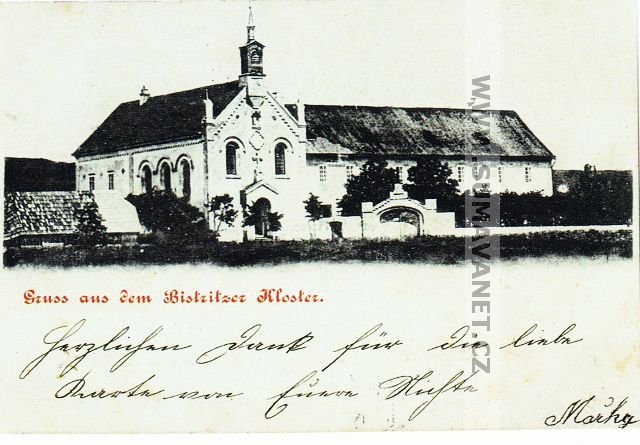 Gruss aus dem Bistritzer Kloster.
Herzlichen Dank für die liebe
Karte von Euere Nichte
Mařka
WWW.SUMAVANET.CZ